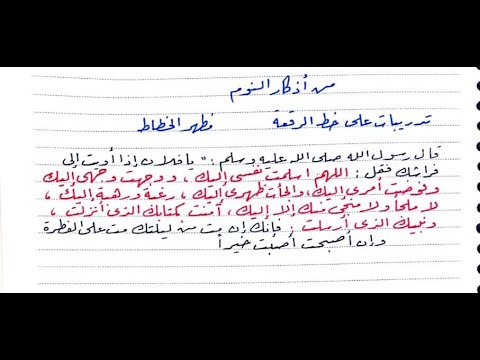 من أذكار النوم
تدريبات على خط الرقعة    فظهر الخطاط
قال رسول الله صلى الله عليه وسلم : " يا فلان إذا أويت إلى
فراشك فقل : اللهم أسلمت نفسى إليك ، ووجهت وجهى إليك
وفوضت أمرى إليك ، وألجأت ظهرى إليك ، رغبة ورهبة إليك ،
لا ملجأ ولا منجى منك إلا إليك ، آمنت بكتابك الذى أنزلت ،
ونبيك الذى أرسلت ; فإنك إن مت من ليلتك مت على الفطرة
وإن أصبحت أصبت خيراً